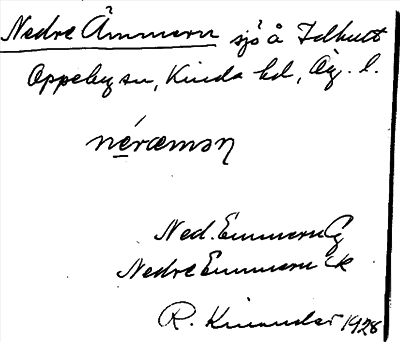 Nedre Ämmern sjö å
Oppeby sn, Kinda hd, Ög. l.
Ned. Emmern G
Nedre Emmern Ek
R. Kinander 1928